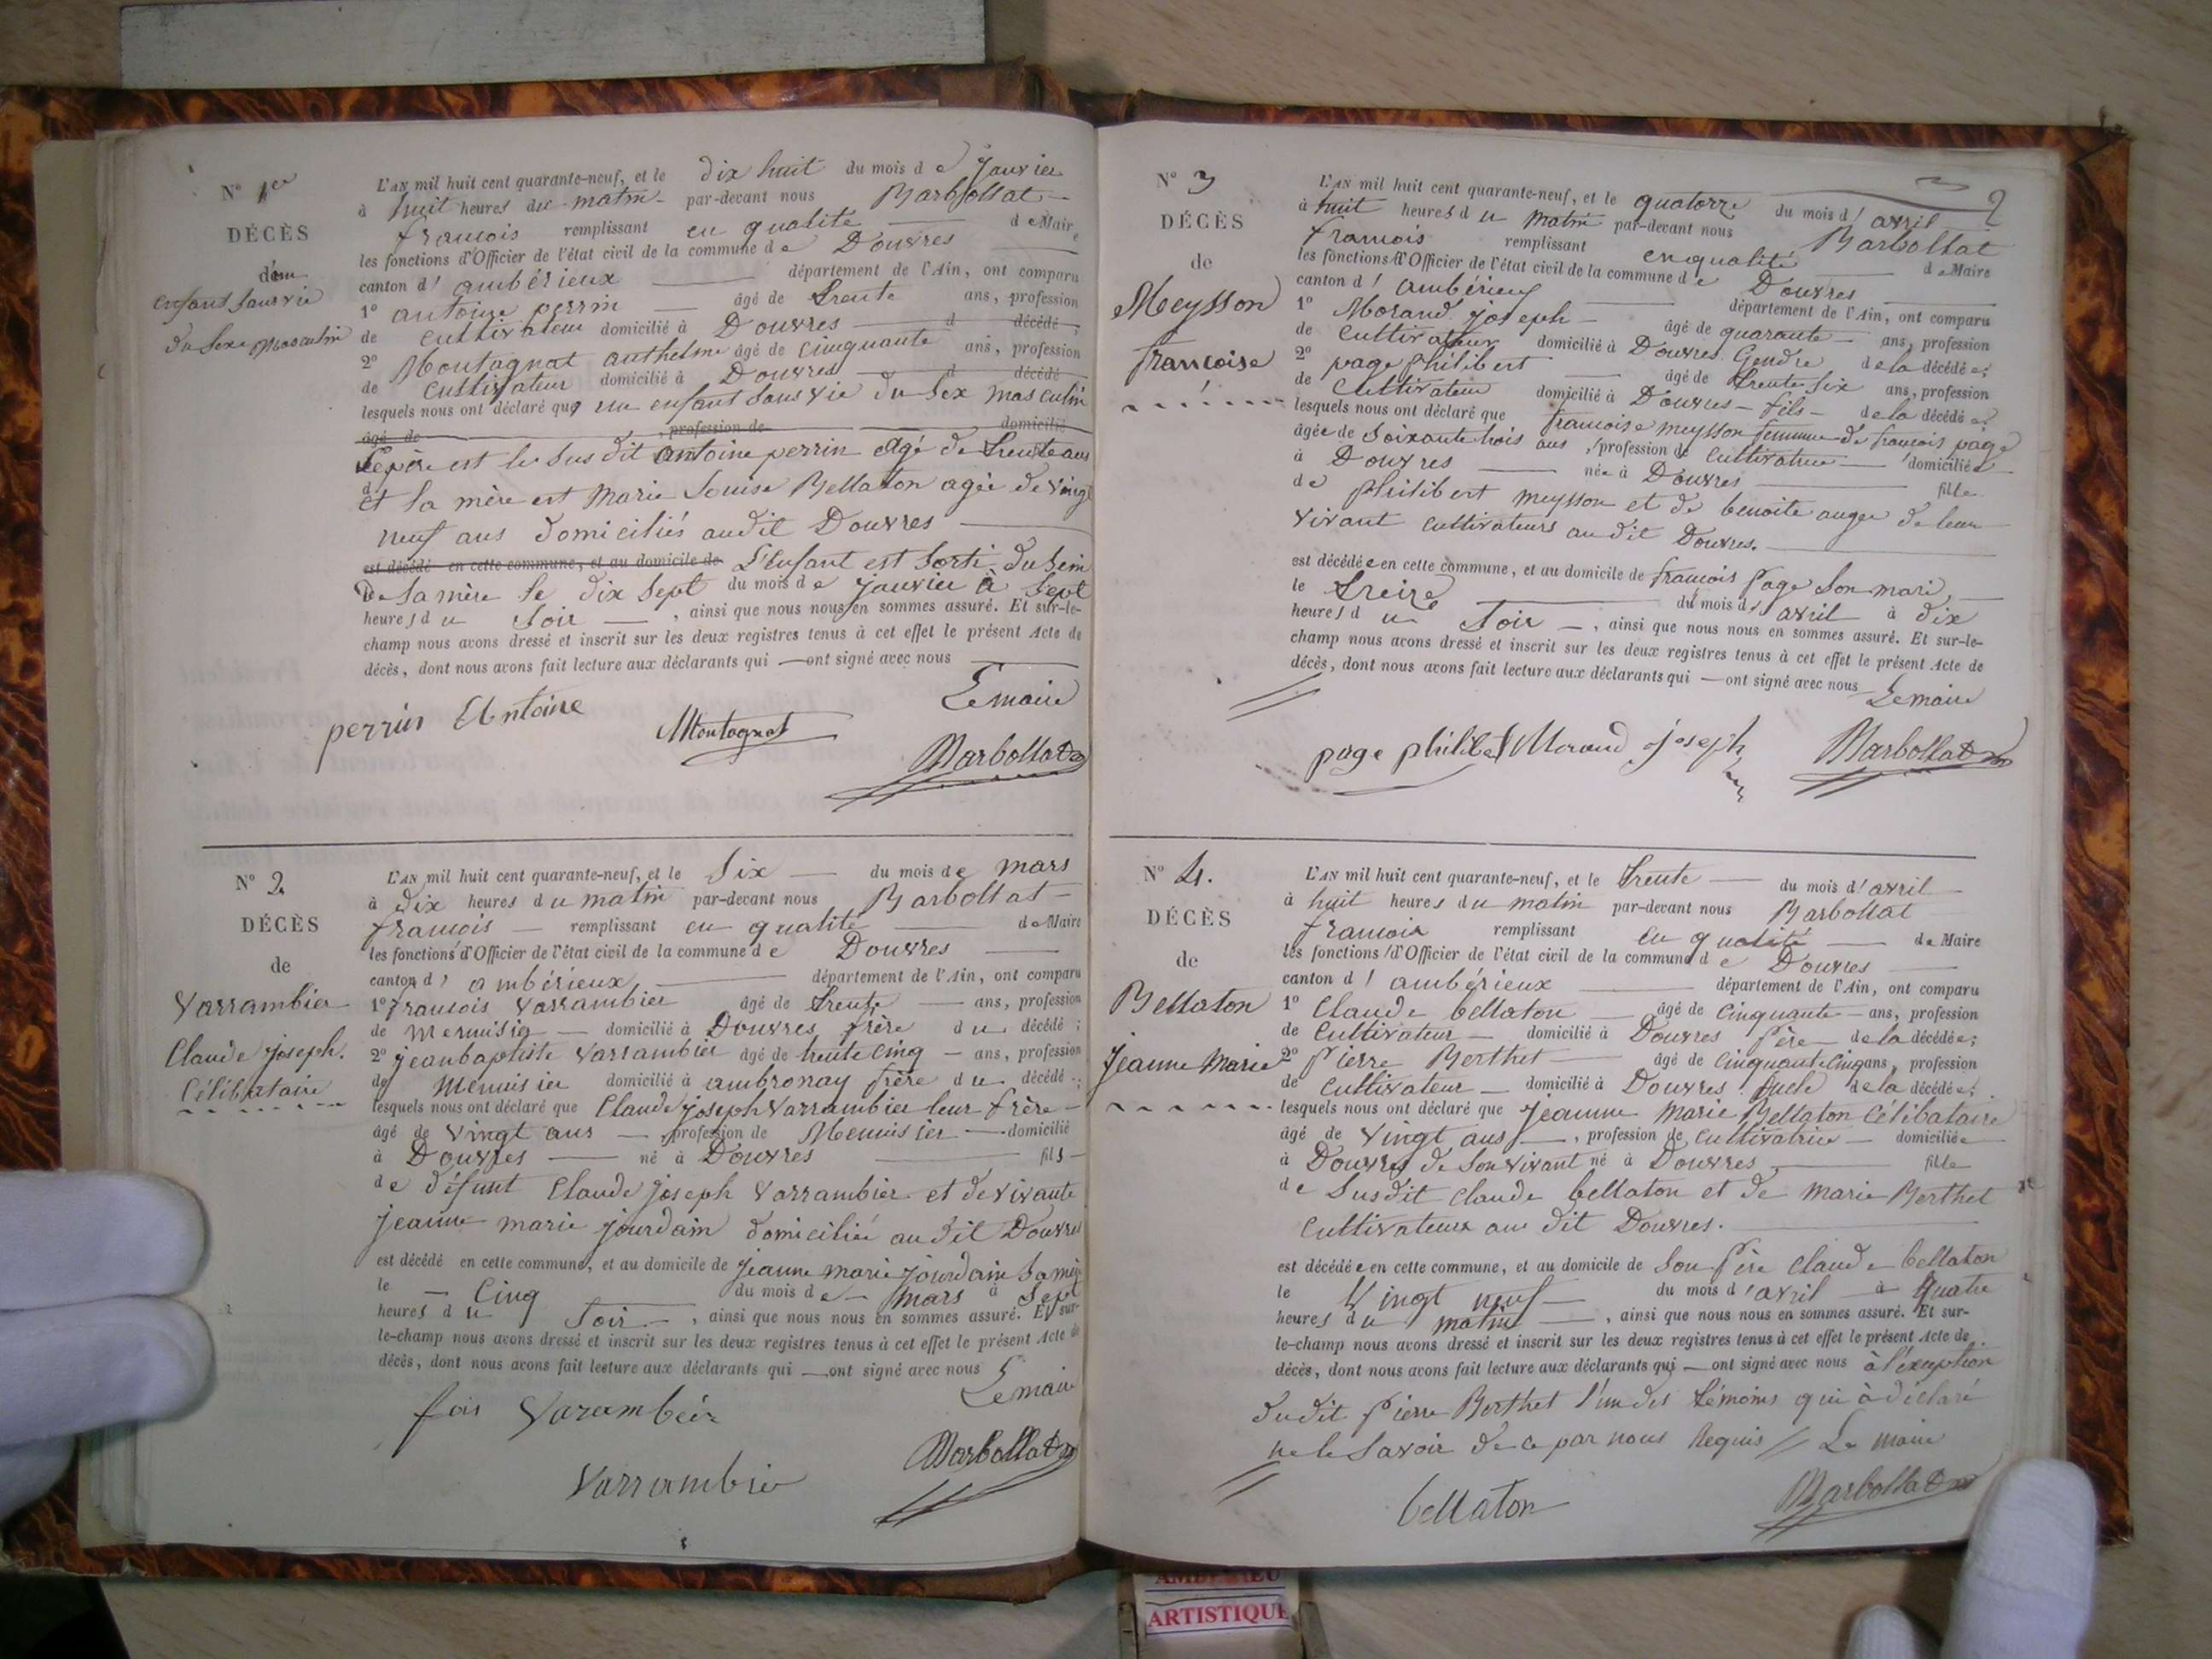 N° 1er
DÉCÈS
d'un
enfant sans vie
du sexe masculin
L'AN mil huit cent quarante-neuf, et le dix huit du mois de janvier
à huit heures du matin par-devant nous Barbollat
francois remplissant en qualité de Maire
les fonctions d'Officier de l'état civil de la commune de Douvres
canton d'ambérieux département de l'Ain, ont comparu
1° antoine perrin âgé de trente ans, profession
de cultivateur domicilié à Douvres d décédé;
2° Montagnat anthelme âgé de cinquante ans, profession
de cultivateur domicilié à Douvres d décédé
lesquels nous ont déclaré que un enfant sans vie du sex masculin
âgé de , profession de domicilié
Le père est le susdit antoine perrin agé de trente ans
et la mère est Marie Louise Bellaton agée de vingt
neuf ans domiciliés audit Douvres
est décédé en cette commune, et au domicile de L'enfant est sorti du sein
de sa mère le dix sept du mois de janvier à sept
heures du soir , ainsi que nous nous en sommes assuré. Et sur-le-
champ nous avons dressé et inscrit sur les deux registres tenus à cet effet le présent Acte de
décès, dont nous avons fait lecture aux déclarants qui ont signé avec nous
Le maire
perrin Antoine Montagnat Barbollat
N° 2
DÉCÈS
de
Varrambier
Claude joseph.
Célibataire
L'AN mil huit cent quarante-neuf, et le six du mois de mars
à dix heures du matin par-devant nous Barbollat
francois remplissant en qualité de Maire
les fonctions d'Officier de l'état civil de la commune de Douvres
canton d'ambérieux département de l'Ain, ont comparu
1° francois Varrambier âgé de trente ans, profession
de menuisier domicilié à Douvres frère du décédé;
2° jean baptiste Varrambier âgé de trente cinq ans, profession
de menuisier domicilié à ambronay frère du décédé;
lesquels nous ont déclaré que Claude joseph Varrambier leur frère
âgé de vingt ans profession de Menuisier domicilié
à Douvres né à Douvres fils
de défunt Claude joseph Varrambier et de vivante
jeanne marie jourdain domiciliée audit Douvres
est décédé en cette commune, et au domicile de jeanne marie jourdain sa mère
le Cinq du mois de mars à sept
heures du soir , ainsi que nous nous en sommes assuré. Et sur-
le-champ nous avons dressé et inscrit sur les deux registres tenus à cet effet le présent Acte de
décès, dont nous avons fait lecture aux déclarants qui ont signé avec nous
Le maire
fois Varambeir
Varrambier Barbollat
N° 3
DÉCÈS
de
Meysson
francoise
L'AN mil huit cent quarante-neuf, et le quatorze du mois d'avril
à huit heures du matin par-devant nous Barbollat
francois remplissant en qualité de Maire
les fonctions d'Officier de l'état civil de la commune de Douvres
canton d'ambérieux département de l'Ain, ont comparu
1° Morand joseph âgé de quarante ans, profession
de cultivateur domicilié à Douvres Gendre de la décédée;
2° page philibert âgé de trente six ans, profession
de Cultivateur domicilié à Douvres fils de la décédée
lesquels nous ont déclaré que francoise meysson femme de francois page
âgée de soixante trois ans , profession de cultivatrice domiciliée
à Douvres née à Douvres fille
de philibert meysson et de benoite auger de leur
vivant cultivateurs audit Douvres.
est décédée en cette commune, et au domicile de francois page son mari,
le treize du mois d'avril à dix
heures du soir , ainsi que nous nous en sommes assuré. Et sur-le-
champ nous avons dressé et inscrit sur les deux registres tenus à cet effet le présent Acte de
décès, dont nous avons fait lecture aux déclarants qui ont signé avec nous
Le maire
page philibert Morand joseph Barbollat
N° 4.
DÉCÈS
de
Bellaton
jeanne Marie
L'AN mil huit cent quarante-neuf, et le trente du mois d'avril
à huit heures du matin par-devant nous Barbollat
francois remplissant en qualité de Maire
les fonctions d'Officier de l'état civil de la commune de Douvres
canton d'ambérieux département de l'Ain, ont comparu
1° Claude bellaton âgé de cinquante ans, profession
de cultivateur domicilié à Douvres père de la décédée;
2° Pierre Berthet âgé de cinquante cinq ans, profession
de cultivateur domicilié à Douvres oncle de la décédée;
lesquels nous ont déclaré que jeanne Marie Bellaton Célibataire
âgé de vingt ans , profession de cultivatrice domiciliée
à Douvres de son vivant né à Douvres fille
de susdit Claude bellaton et de Marie Berthet
cultivateurs au dit Douvres.
est décédée en cette commune, et au domicile de son père Claude bellaton
le vingt neuf du mois d'avril à quatre
heures du matin , ainsi que nous nous en sommes assuré. Et sur-
le-champ nous avons dressé et inscrit sur les deux registres tenus à cet effet le présent Acte de
décès, dont nous avons fait lecture aux déclarants qui ont signé avec nous à l'éxeption
dudit Pierre Berthet l'un des témoins qui à déclaré
ne le savoir de ce par nous Requis Le maire
bellaton Barbollat
ARTISTIQUE